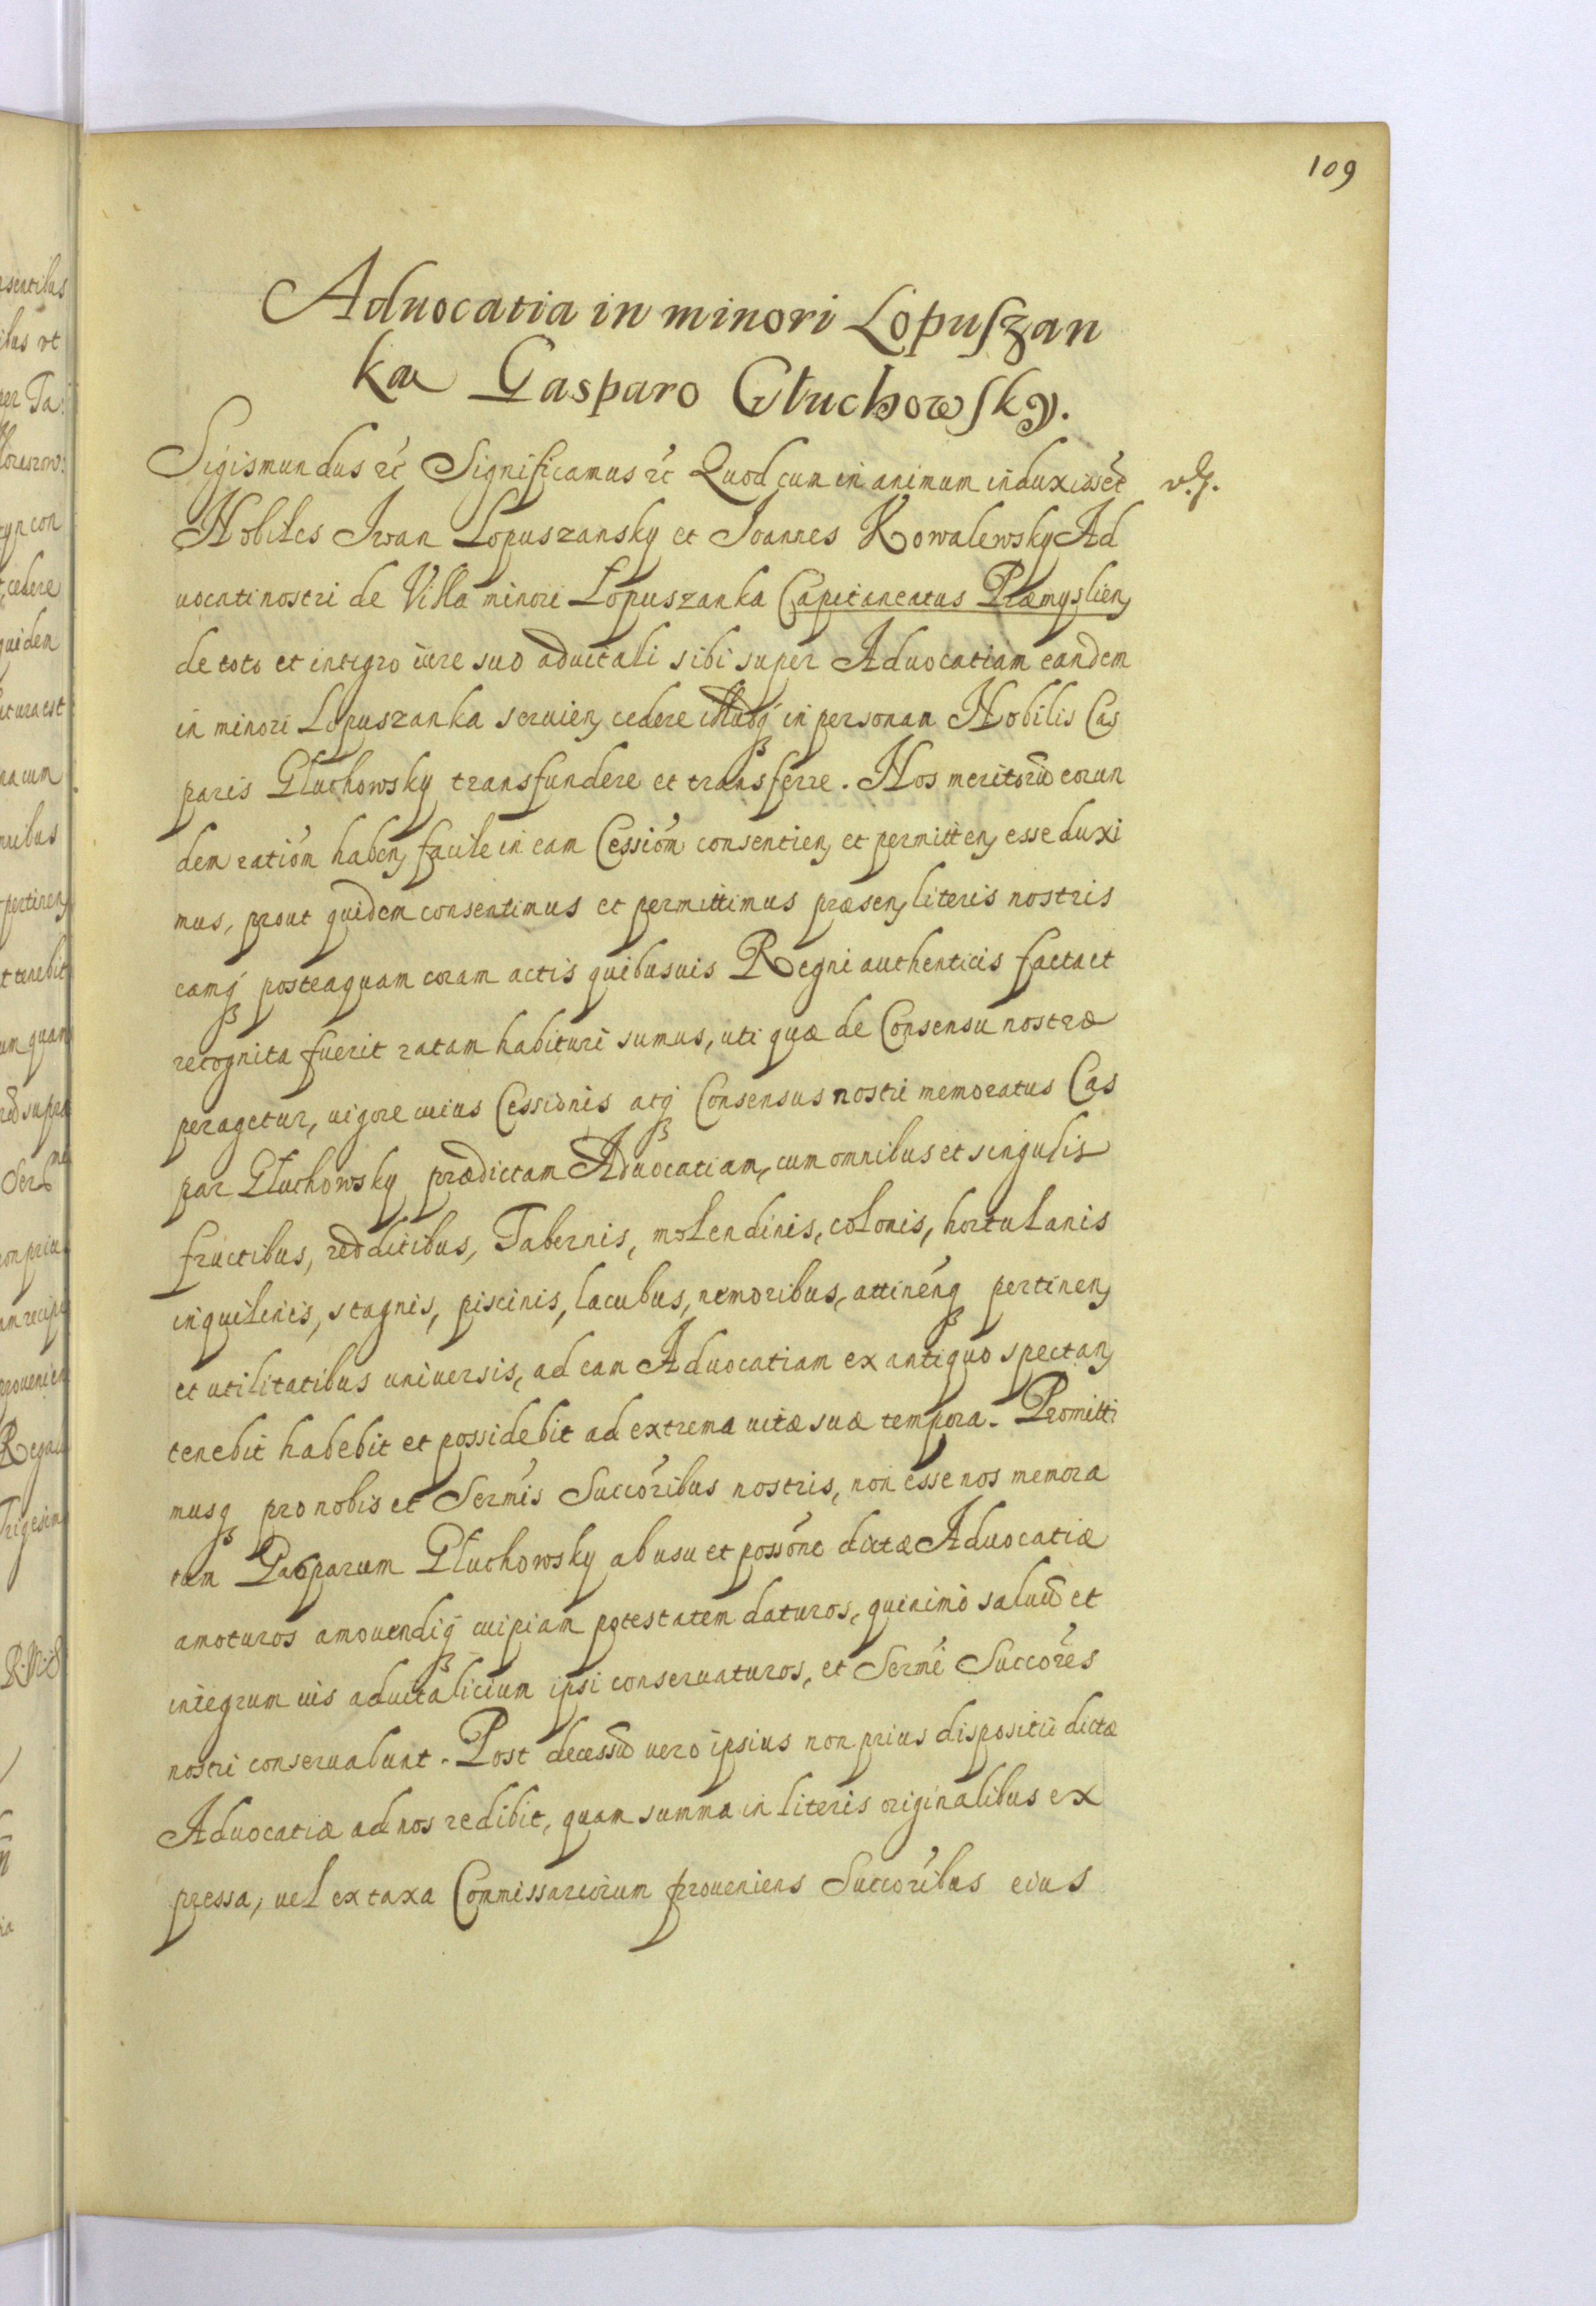 109
Aduocatia in minori Lopuszan
ka Gasparo Głuchowsky.
Sigismundus etc Significamus etc Quod cum in animum induxissēt
Nobiles Iwan Lopuszansky et Joannes Kowalewsky Ad
uocati nostri de Villa minori Lopuszanka Capitaneatus Præmyslien,
de toto et integro iure suo aduitali sibi super Aduocatiam eandem
in minori Lopuszanka seruien, cedere illudq́ in personam Nobilis Cas
paris Głuchowsky transfundere et transferre. Nos meritorū eorun
dem ratiōm haben, facile in eam Cessiōm consentien, et permitten, esse duxi
mus, prout quidem consentimus et permittimus præsen, literis nostris
eamq́ posteaquam coram actis quibusuis Regni authenticis facta et
recognita fuerit ratam habituri sumus, uti quæ de Consensu nostro
peragetur, uigore cuius Cessionis atq́ Consensus nostri memoratus Cas
par Głuchowsky prædictam Aduocatiam, cum omnibus et singulis
fructibus, redditibus, Tabernis, molendinis, colonis, hortulanis
inquilinis, stagnis, piscinis, lacubus, nemoribus, attinēnq́ pertinen,
et utilitatibus uniuersis, ad eam Aduocatiam ex antiquo spectan,
tenebit habebit et possidebit ad extrema uitæ suæ tempora. Promitti
musq́ pro nobis et Sermīs Succōribus nostris, non esse nos memora
tum Gasparum Głuchowsky ab usu et possōne dictæ Aduocatiæ
amoturos amouendiq́ cuipiam potestatem daturos, quinimo saluū et
integrum ius aduitalicium ipsi conseruaturos, et Sermī Succōres
nostri conseruabunt. Post decessū uero ipsius non prius dispositiō dictæ
Aduocatiæ ad nos redibit, quam summa in literis originalibus ex
pressa, uel ex taxa Commissariorum proueniens Succōribus eius